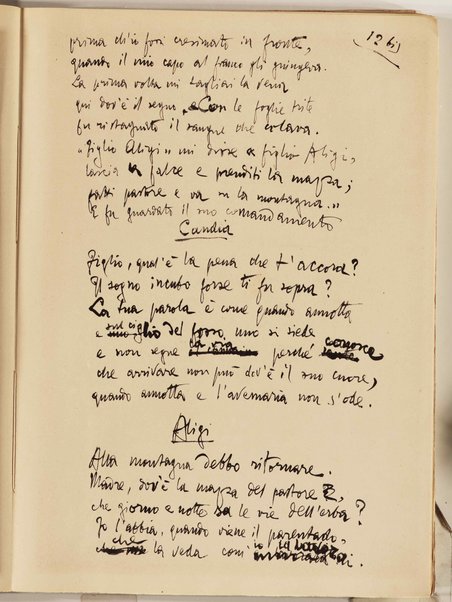 126)
prima ch'io fossi cresimato in fronte,
quando il mio capo al fianco gli giungeva.
La prima volta mi tagliai la vena
qui dov'è il segno. Con le foglie trite
fu ristagnato il sangue che colava.
"Figlio Aligi" mi disse "figlio Aligi,
lascia la falce e prenditi la mazza;
fatti pastore e va su la montagna."
E fu guardato il suo comandamento
Candia
Figlio, qual'è la pena che t'accora?
Il sogno incubo forse ti fu sopra?
La tua parola è come quando annotta
e sul ciglio del fosso uno si siede
e non segue la via perché conosce
che arrivare non può dov'è il suo cuore,
quando annotta e l'avemaria non s'ode.
Aligi
Alla montagna debbo ritornare.
Madre, dov'è la mazza del pastore
che giorno e notte sa le vie dell'erba?
Io l'abbia, quando viene il parentado,
che la veda com'io